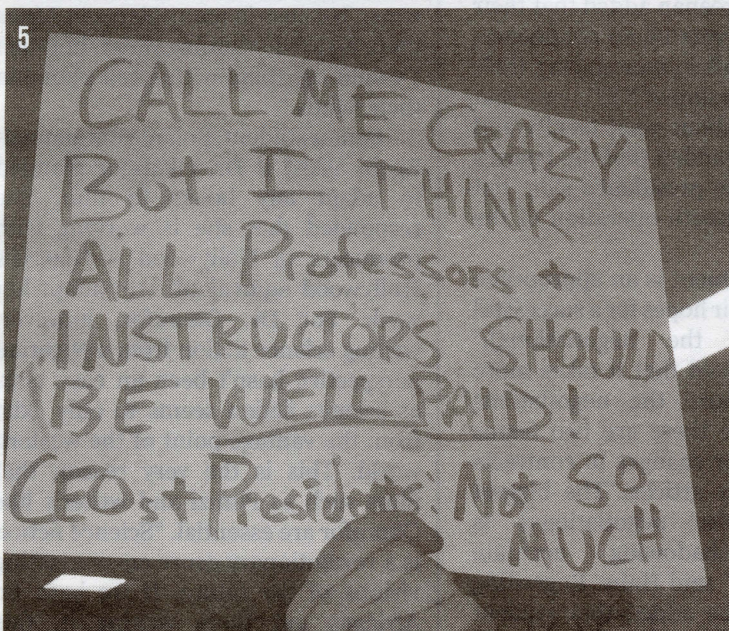 5
CALL ME CRAZY
But I THINK
ALL Professors +
INSTRUCTORS SHOULD
BE WELL PAID!
CEOs + Presidents: Not SO
MUCH